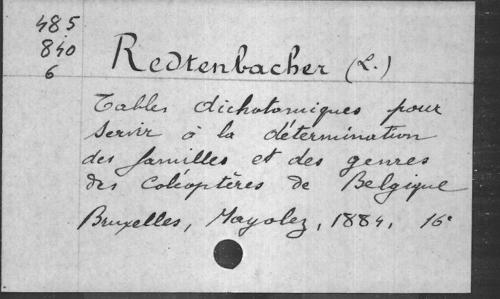 485
840
6
Redtenbacher (L.)
Tables dichotomiques pour
servir à la détermination
des familles et des genres
des coléoptères de Belgique
Bruxelles, Mayolez, 1884, 16°